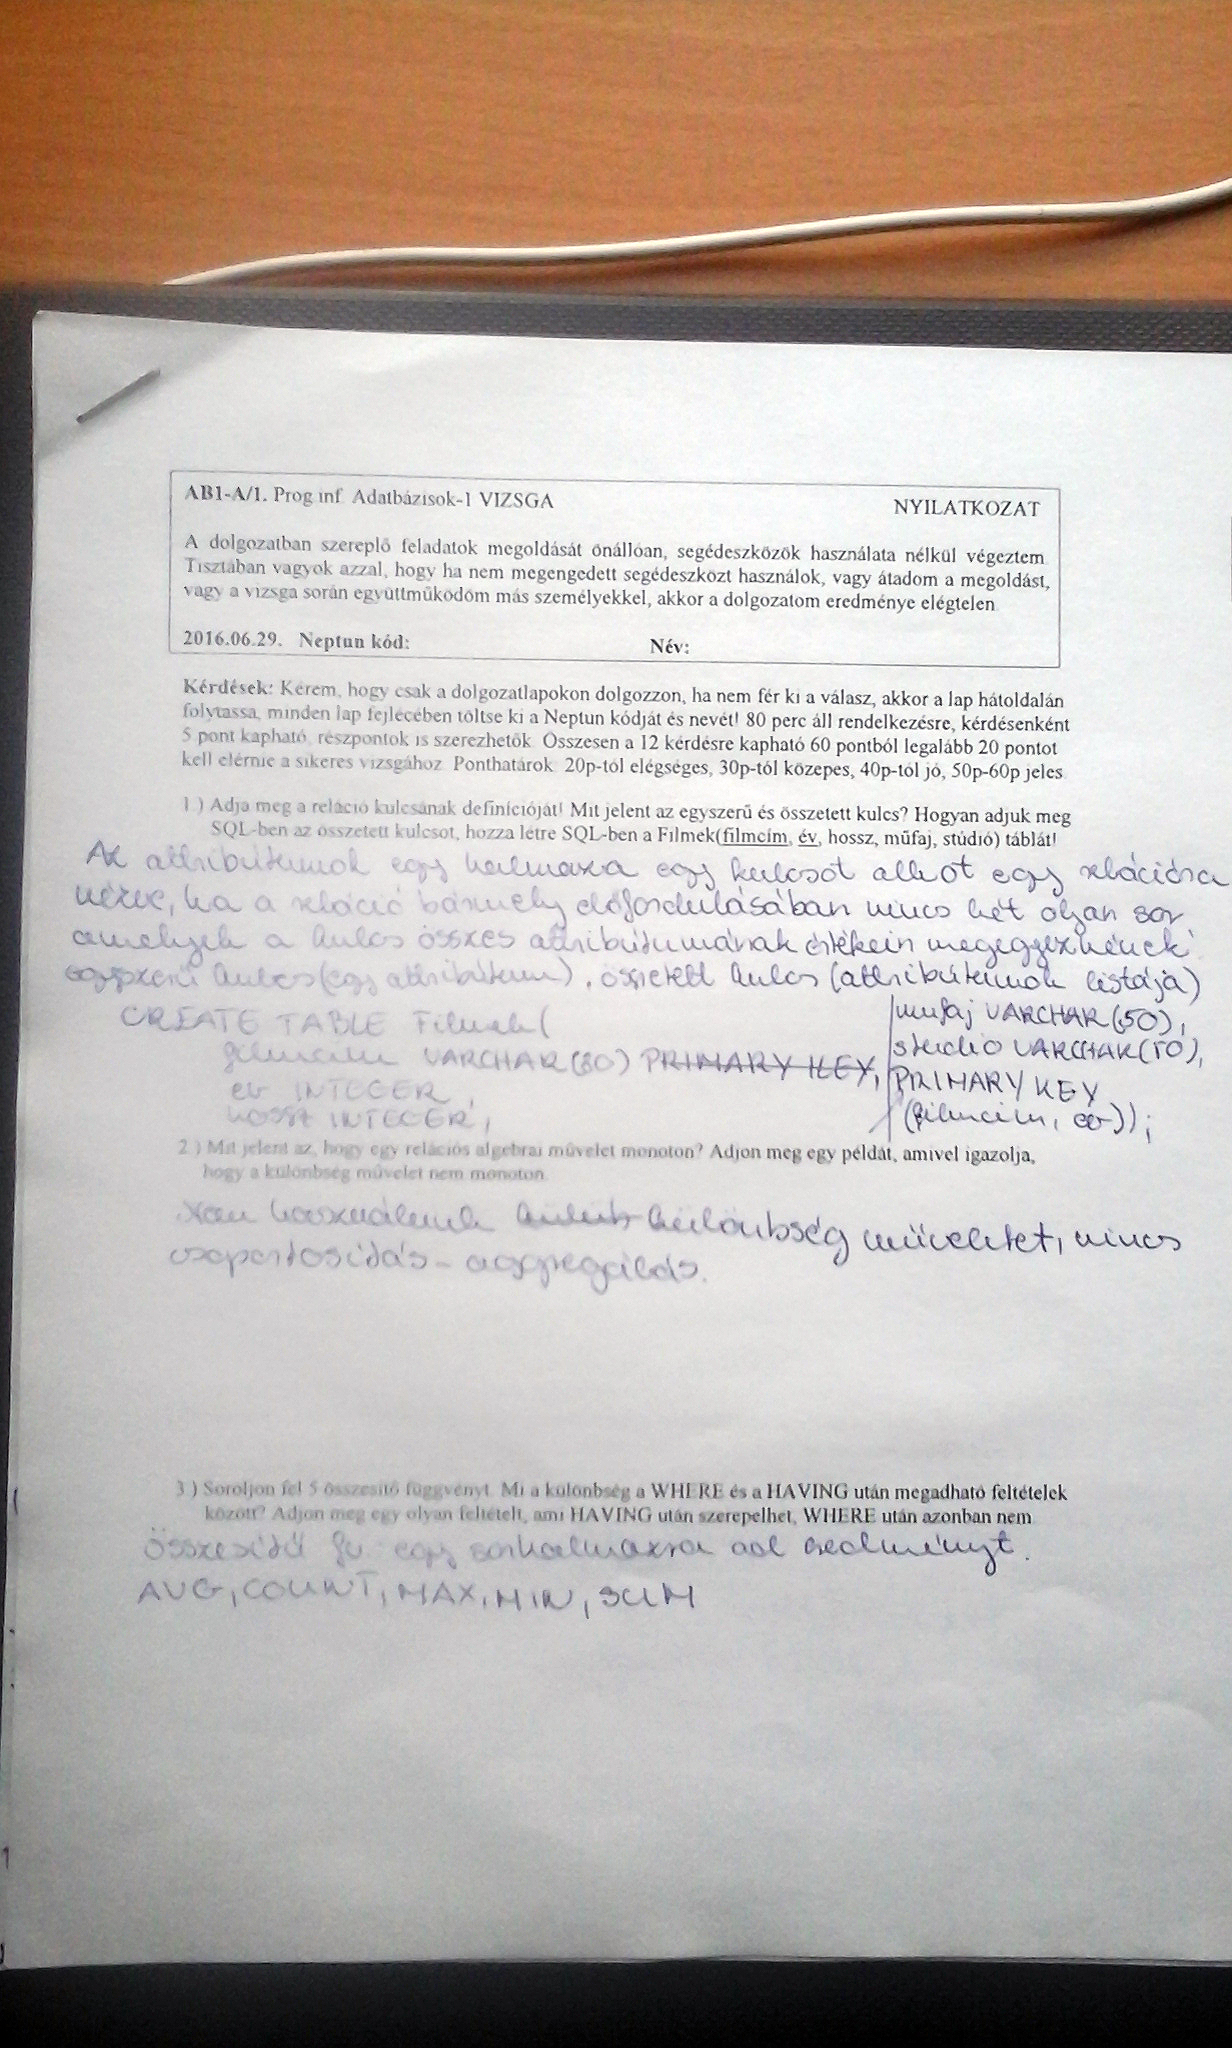 AB1-A/1. Prog inf Adatbázisok-1 VIZSGA NYILATKOZAT
A dolgozatban szereplő feladatok megoldását önállóan, segédeszközök használata nélkül végeztem.
Tisztában vagyok azzal, hogy ha nem megengedett segédeszközt használok, vagy átadom a megoldást,
vagy a vizsga során együttműködöm más személyekkel, akkor a dolgozatom eredménye elégtelen
2016.06.29. Neptun kód: Név:
Kérdések: Kérem, hogy csak a dolgozatlapokon dolgozzon, ha nem fér ki a válasz, akkor a lap hátoldalán
folytassa, minden lap fejlécében töltse ki a Neptun kódját és nevét! 80 perc áll rendelkezésre, kérdésenként
5 pont kapható, részpontok is szerezhetők. Összesen a 12 kérdésre kapható 60 pontból legalább 20 pontot
kell elérnie a sikeres vizsgához. Ponthatárok 20p-tól elégséges, 30p-tól közepes, 40p-tól jó, 50p-60p jeles
1.) Adja meg a reláció kulcsának definícióját! Mit jelent az egyszerű és összetett kulcs? Hogyan adjuk meg
SQL-ben az összetett kulcsot, hozza létre SQL-ben a Filmek(filmcím, év, hossz, műfaj, stúdió) táblát!
Az attribútumok egy halmaza egy kulcsot alkot egy relációra
nézve, ha a reláció bármely előfordulásában nincs két olyan sor
amelyek a kulcs összes attribútumának értékein megegyeznének
egyszerű kulcs (egy attribútum), összetett kulcs (attribútumok listája)
CREATE TABLE Filmek(
filmcim VARCHAR(80) PRIMARY KEY,
ev INTEGER,
hossz INTEGER,
mufaj VARCHAR(50),
studio VARCHAR(50),
PRIMARY KEY
(filmcim, ev));
2.) Mit jelent az, hogy egy relációs algebrai művelet monoton? Adjon meg egy példát, amivel igazolja,
hogy a különbség művelet nem monoton
használunk különbség műveletet, nincs
csoportosítás-aggregálás.
3.) Soroljon fel 5 összesítő függvényt. Mi a különbség a WHERE és a HAVING után megadható feltételek
között? Adjon meg egy olyan feltételt, ami HAVING után szerepelhet, WHERE után azonban nem
Összesítő fv. egy sorhalmazra ad eredményt.
AVG, COUNT, MAX, MIN, SUM